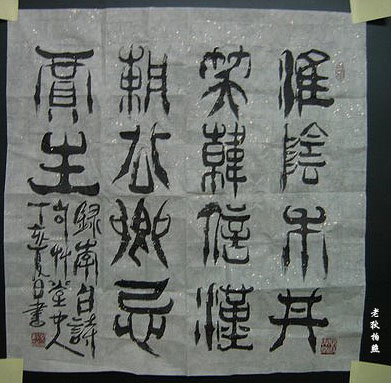 淮陰市井
笑韓信漢
朝公卿忌
賈生
錄李白詩
丁亥夏日書
老狄拍照